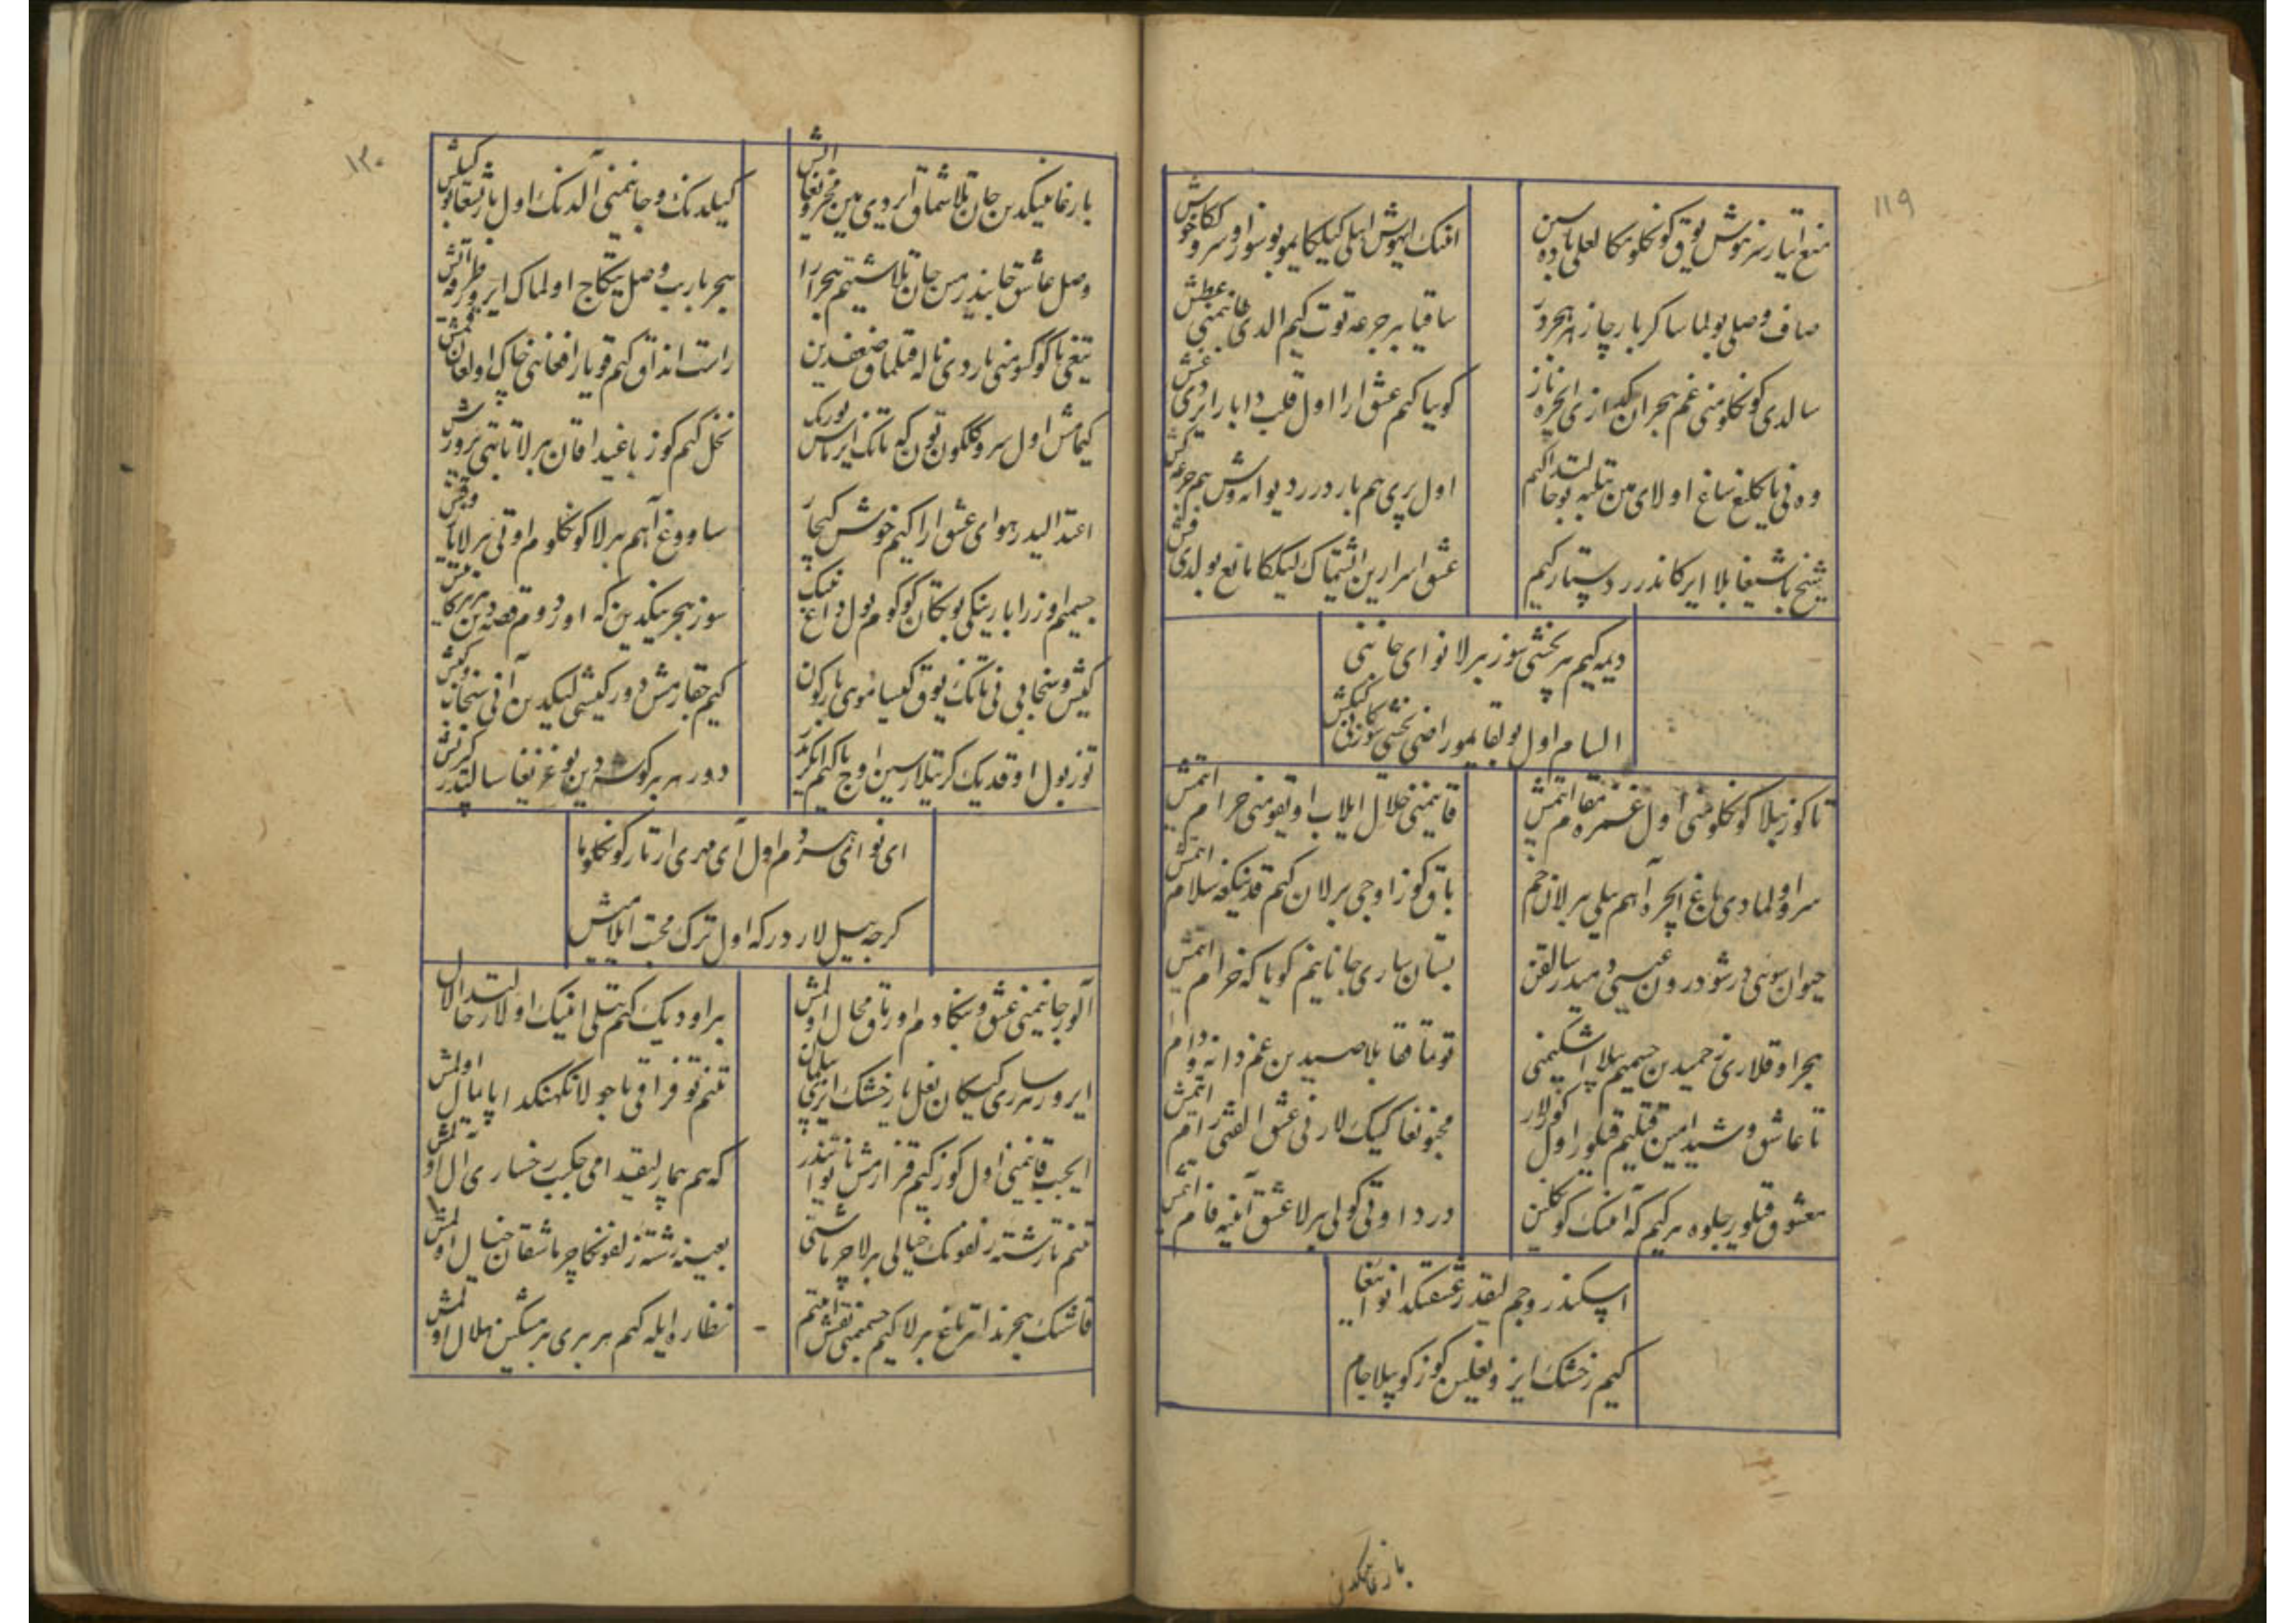 ۱۱۹
منع ایتار سز هوش یوق کونکلومکا لعلی باده سین
انینک ایهوش اهلی کیلکای مو بو سوز اوسروککا خوش
صاف وصلی بولماسا کر بار چاز زهر هجر
ساقیا بیر جرعه توت کیم الدی جانیمنی عطش
سالدی کونکلومنی غم هجران کدازی ایچره ناز
کوییا کیم عشق ارا اول قلب دا بار ایردی غش
وه نی یانکلیغ ساغ اولای مین تیلبه بو حالتدا کیم
اول پری هم بار درر دیوانه وش هم جرعه کش
شیخ باشیغا بلا ایرکاندرر دستار کیم
عشق اسرارین ایشیتماک لیککا مانع بولدی
دیمه کیم هر یخشی سوز بیرلا نوای جانینی
السام اول بولقایمو راضی یخشی سوزنی کیم
تا کوز بیلا کونکلومنی اول غمزه مقام ایتمیش
قانیمنی حلال ایلاب اویقومنی حرام ایتمیش
سرو اولمادی باغ ایچره آهیم ییلی بیرلا خم
باق کوز اوچی بیرلان کیم قدینکغه سلام ایتمیش
حیوان سویی درشو در ون عیسی دمیدر سالقین
بستان ساری جانانیم کویا که خرام ایتمیش
هجر اوقلاری زخمیدین جسمیم بیلا اشکیمنی
قوتماققا بلا صیدین غم دانه و دام ایتمیش
تا عاشق و شیدا مین قتلیم قیلور اول کوزلار
مجنونغا کییک لارنی عشق الفتی رام ایتمیش
معشوق قیلور جلوه هر کیم که انینک کونکلین
درد اوتی کولی بیرلا عشق آینه فام ایتمیش
اسکندر و جم لیقدر عشقینکدا نوائیغا
کیم رخشینک ایزی و نعلین کوزکو بیلا جام
بارغانینکدین
۱۲۰
بارغانینکدین جان تلاشماق ایردی مین محزونغا ایش
کیلدینک و جانیمنی آلدینک اول بارش بو کیلیش
وصل عاشق جانیدر مین جان تلاشتیم هجر ارا
هجر یارب وصل ییتکاج اولماک ایرور طرفه ایش
تیغی یا کوکسومنی یاردی ناله قیلماق ضعفدین
راست انداق کیم قویار افغانی چاک اولغان قمیش
کیمامیش اول سرو کلکون تون که تانک ایرماس یورک
نخل کیم کوز باغیدا قان بیرلا تاپتی پرورش
اعتدالیدر هوای عشق ارا کیم خوش کیچار
ساووغ آهیم بیرلا کونکلوم اوتی بیرلا یاز و قیش
جسمیم اوزرا بار ینکی بوتکان کوکوم بول داغ نینک
سوز هجرینکدین که اورد وم قصه دین هر یان
کیش و سنجابی نی تانک یوق کیسا موی یارکون
کیم حقارمیش دور کیشی لیکدین آنی سنجاب و کیش
توز بول اوقدیک کر تیلارسین اوج یا کیم ایکری
دور هر بیر کوشه دین بوغزیغا سالیبدر کیریش
ای نوائی سردم اول آی مهری ارتار کونکلوما
کرچه ییل لار درکه اول ترک محبت ایلامیش
آلور جانیمنی عشق و سنکا دم اورماق محال اولمیش
بر اودیک کیم تیلی انینک اولار حالتدا لال
ایرور هر ساری پیکان نعل یا رخشینک ایزی بیلمان
تنیم توفراقی یا جولانکهینکدا پایمال اولمیش
ایچیب قانیمنی اول کوز کیم قیزارمیش ناتوان دور
که هم بیمار لیقیدا می چکیب رخساری آل اولمیش
تنیم تار رشته زلفونک خیالی بیرلا چرماشتی
بعینه رشته زلفونکا چرماشقان خیال اولمیش
قاشینک هجریدا تیرناغ بیرلا کیم جسمیمنی نقش ایتتیم
نظاره ایله کیم هر بیری بیر مشکین هلال اولمیش